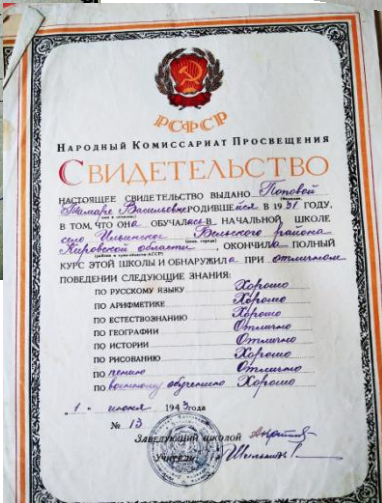 РСФСР
НАРОДНЫЙ КОМИССАРИАТ ПРОСВЕЩЕНИЯ
СВИДЕТЕЛЬСТВО
НАСТОЯЩЕЕ СВИДЕТЕЛЬСТВО ВЫДАНО Поповой
Тамаре Васильевне РОДИВШЕЙСЯ В 1931 ГОДУ,
В ТОМ, ЧТО ОНА ОБУЧАЛАСЬ В НАЧАЛЬНОЙ ШКОЛЕ
село Ильинское района
Кировской области, ОКОНЧИЛА ПОЛНЫЙ
КУРС ЭТОЙ ШКОЛЫ И ОБНАРУЖИЛА ПРИ отличном
ПОВЕДЕНИИ СЛЕДУЮЩИЕ ЗНАНИЯ:
ПО РУССКОМУ ЯЗЫКУ Хорошо
ПО АРИФМЕТИКЕ Хорошо
ПО ЕСТЕСТВОЗНАНИЮ Хорошо
ПО ГЕОГРАФИИ Отлично
ПО ИСТОРИИ Отлично
ПО РИСОВАНИЮ Хорошо
ПО пению Отлично
ПО военному обучению Хорошо
"1" июня 1943 года
№ 13
ЗАВЕДУЮЩИЙ ШКОЛОЙ
УЧИТЕЛИ